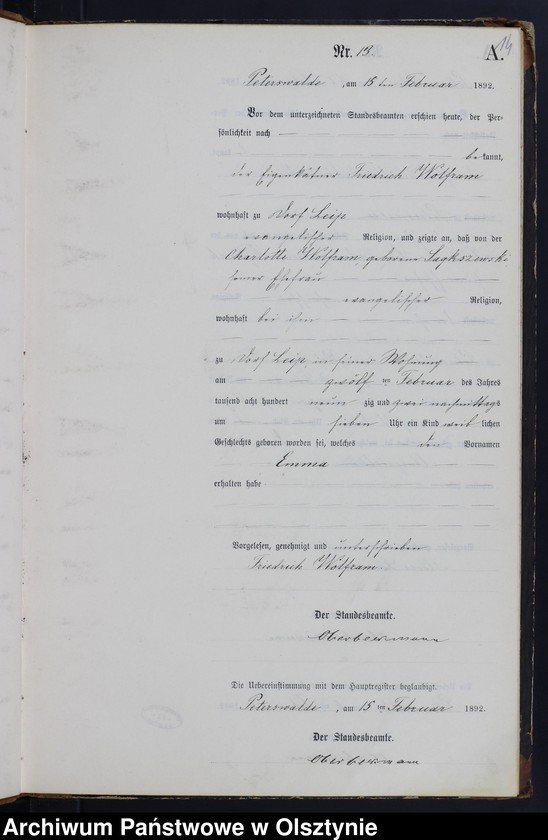 14
Nr. 13. A.
Peterswalde, am 15 ten Februar 1892.
Vor dem unterzeichneten Standesbeamten erschien heute, der Per-
sönlichkeit nach
bekannt,
der Eigenkätner Friedrich Wolfram
wohnhaft zu Dorf Leip
evangelischer Religion, und zeigte an, daß von der
Charlotte Wolfram, geborene
seiner Ehefrau
evangelischer Religion,
wohnhaft bei ihm
zu Dorf Leip in seiner Wohnung
am zwölf ten Februar des Jahres
tausend acht hundert neun zig und zwei nachmittags
um sieben Uhr ein Kind weib lichen
Geschlechts geboren worden sei, welches den Vornamen
Emma
erhalten habe
Vorgelesen, genehmigt und unterschrieben
Friedrich Wolfram
Der Standesbeamte.
Die Uebereinstimmung mit dem Hauptregister beglaubigt.
Peterswalde, am 15 ten Februar 1892.
Der Standesbeamte.
Archiwum Państwowe w Olsztynie